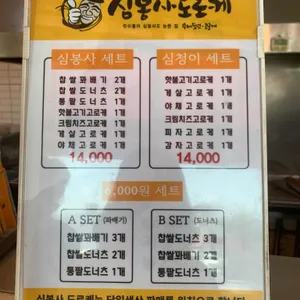 심봉사도로케
심봉사 세트
찹쌀꽈배기 2개
찹쌀도너츠 2개
통팥도너츠 1개
핫불고기고로케 1개
크림치즈고로케 1개
게살고로케 1개
야채고로케 1개
14,000
심청이 세트
핫불고기고로케 1개
게살고로케 1개
야채고로케 1개
크림치즈고로케 1개
피자고로케 1개
감자고로케 1개
14,000
6,000원 세트
A SET (꽈배기)
찹쌀꽈배기 3개
찹쌀도너츠 2개
통팥도너츠 1개
B SET (도너츠)
찹쌀도너츠 3개
찹쌀꽈배기 2개
통팥도너츠 1개
심봉사 도로케는 당일생산 판매를 원칙으로 합니다